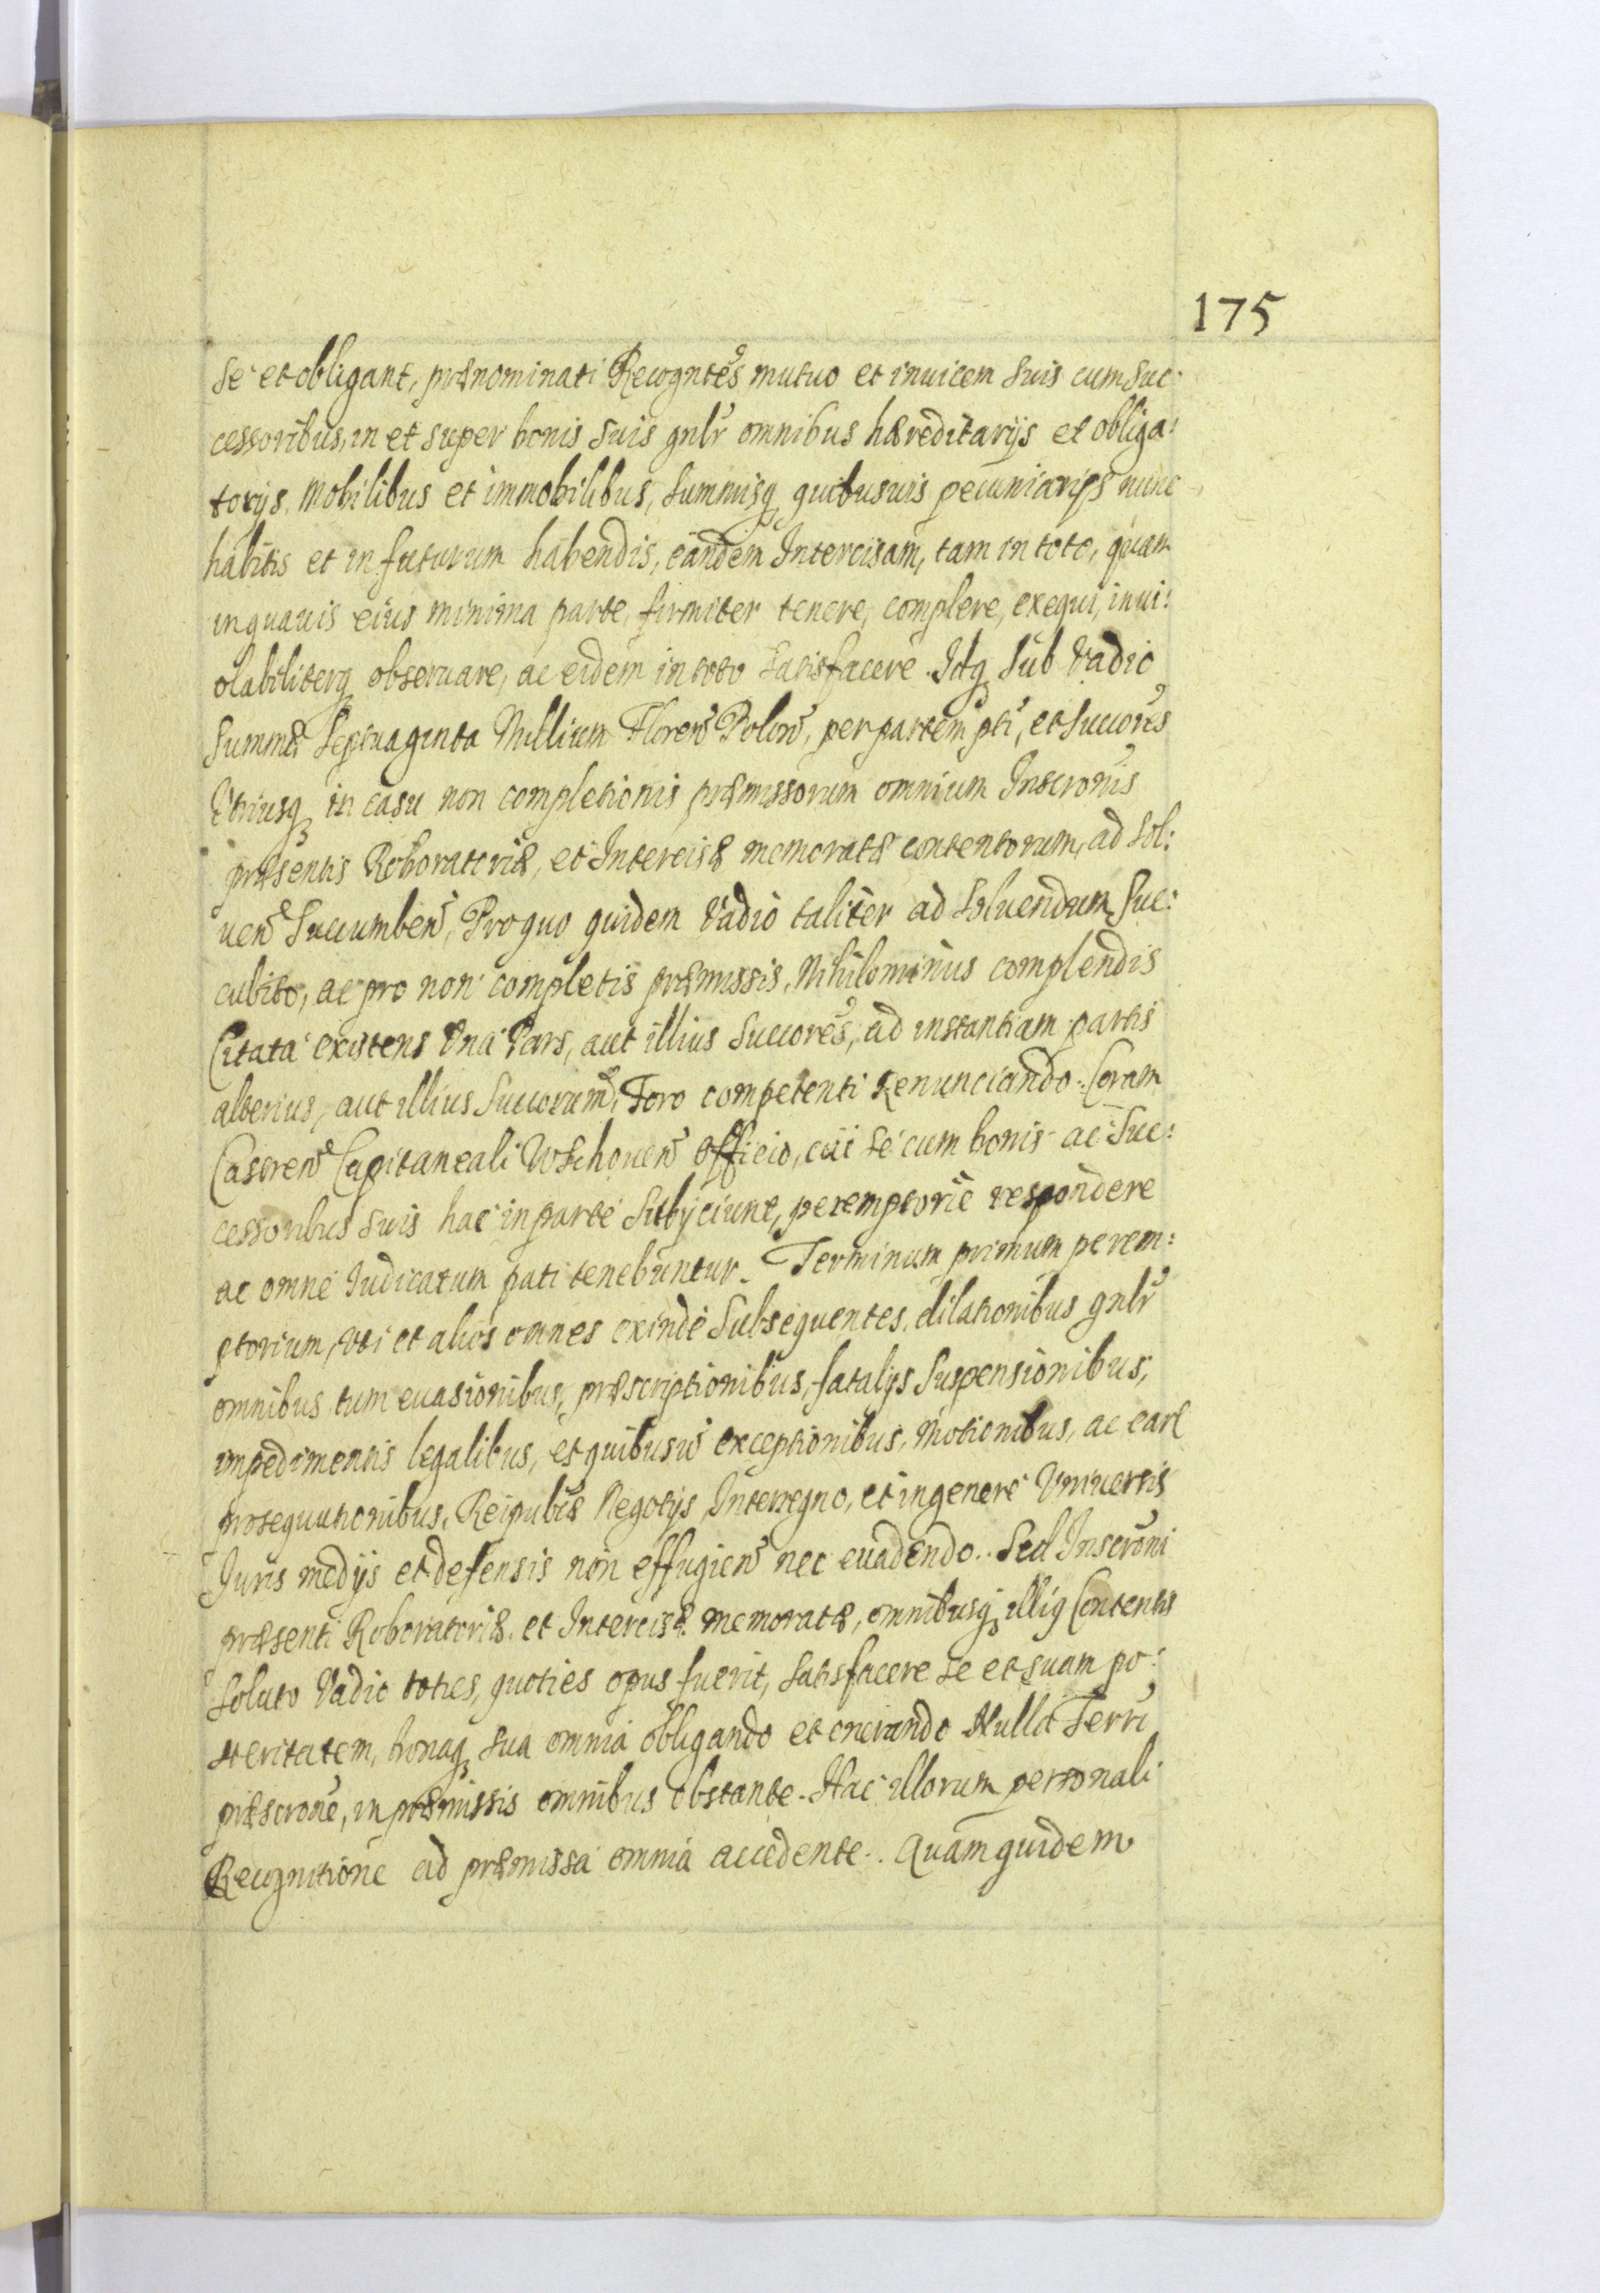 175
se et obligant, prænominati Recogntēs mutuo et inuicem suis cum suc:
cessoribus, in et super bonis suis gnlr omnibus hæreditarijs et obliga:
torijs, Mobilibus et immobilibus, summisq quibusuis pecuniarijs nunc
habitis et in futurum habendis, eandem Intercisam, tam in toto, quam
in quauis eius minima parte, firmiter tenere, complere, exequi, inui:
olabiliterq obseruare, ac eidem in toto satisfacere. Idq sub Vadio
summæ Septuaginta Millium Floren Polon, per partem pti, et succores
Vtriusq in casu non completionis præmissorum omnium Inscronis
præsentis Roboratoriæ, et Intercisæ memoratæ contentorum, ad sol:
uen succumben, Pro quo quidem Vadio taliter ad soluendum suc:
cubito, ac pro non completis præmissis, Nihilominus complendis
Citata existens Vna Pars, aut illius succores, ad instantiam partis
alterius, aut illius succorum, Foro competenti Renunciando. Coram
Castren Capitaneali Wschouen Officio, cui se cum bonis ac suc:
cessoribus suis hac in parte subijciunt, peremptorie respondere
ac omne Iudicatum pati tenebuntur. Terminum primum perem:
ptorium, vti et alios omnes exinde subsequentes, dilationibus gnlr
omnibus tum euasionibus, præscriptionibus, fatalijs suspensionibus,
impedimentis legalibus, et quibusuis exceptionibus, Motionibus, ac earū
prosequutionibus, Reipublæ Negotijs, Interregno, et in genere Vniuersis
Iuris medijs et defensis non effugien nec euadendo. Sed Inscroni
præsenti Roboratoriæ et Intercisæ memoratæ, omnibusq illiq Contentis
soluto Vadio toties, quoties opus fuerit, satisfacere se et suam po:
steritatem, bonaq sua omnia obligando et onerando Nulla Terrī
præscrone, in præmissis omnibus obstante. Hac illorum personali
Recognitione ad præmissa omnia accedente. Quam quidem